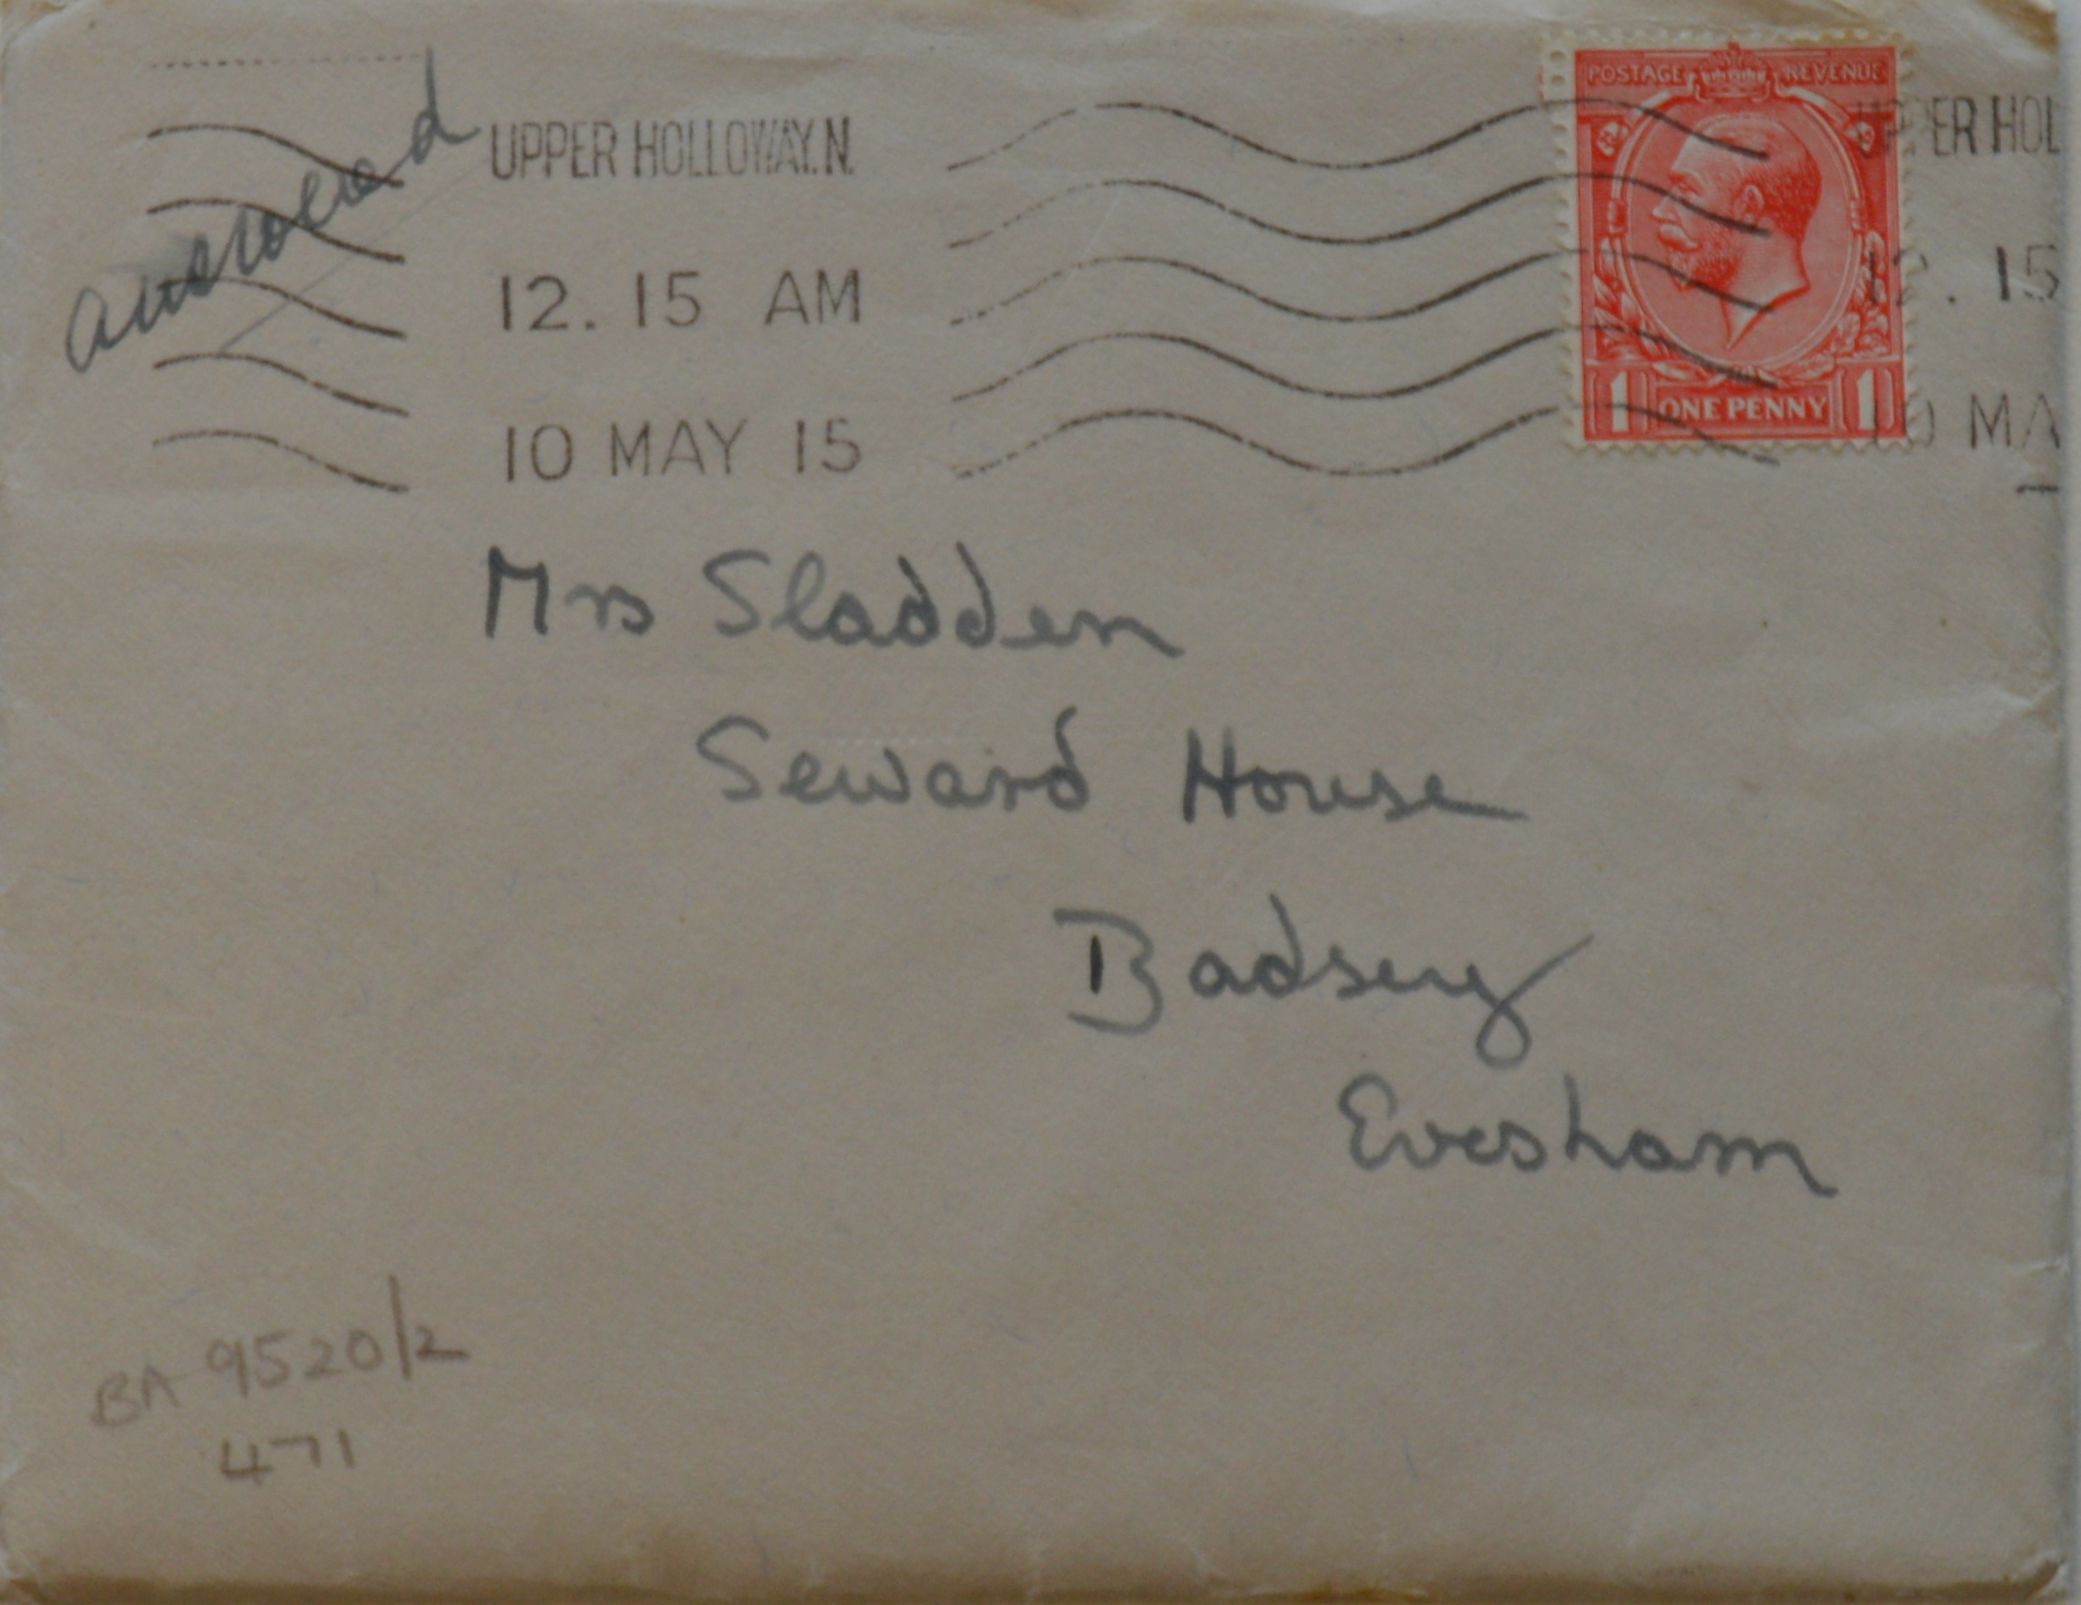 answered
UPPER HOLLOWAY.N.
12.15 AM
10 MAY 15
POSTAGE REVENUE
1 ONE PENNY 1
UPPER HOL
12.15
10 MA
Mrs Sladden
Seward House
Badsey
Evesham
BA 9520/2
471